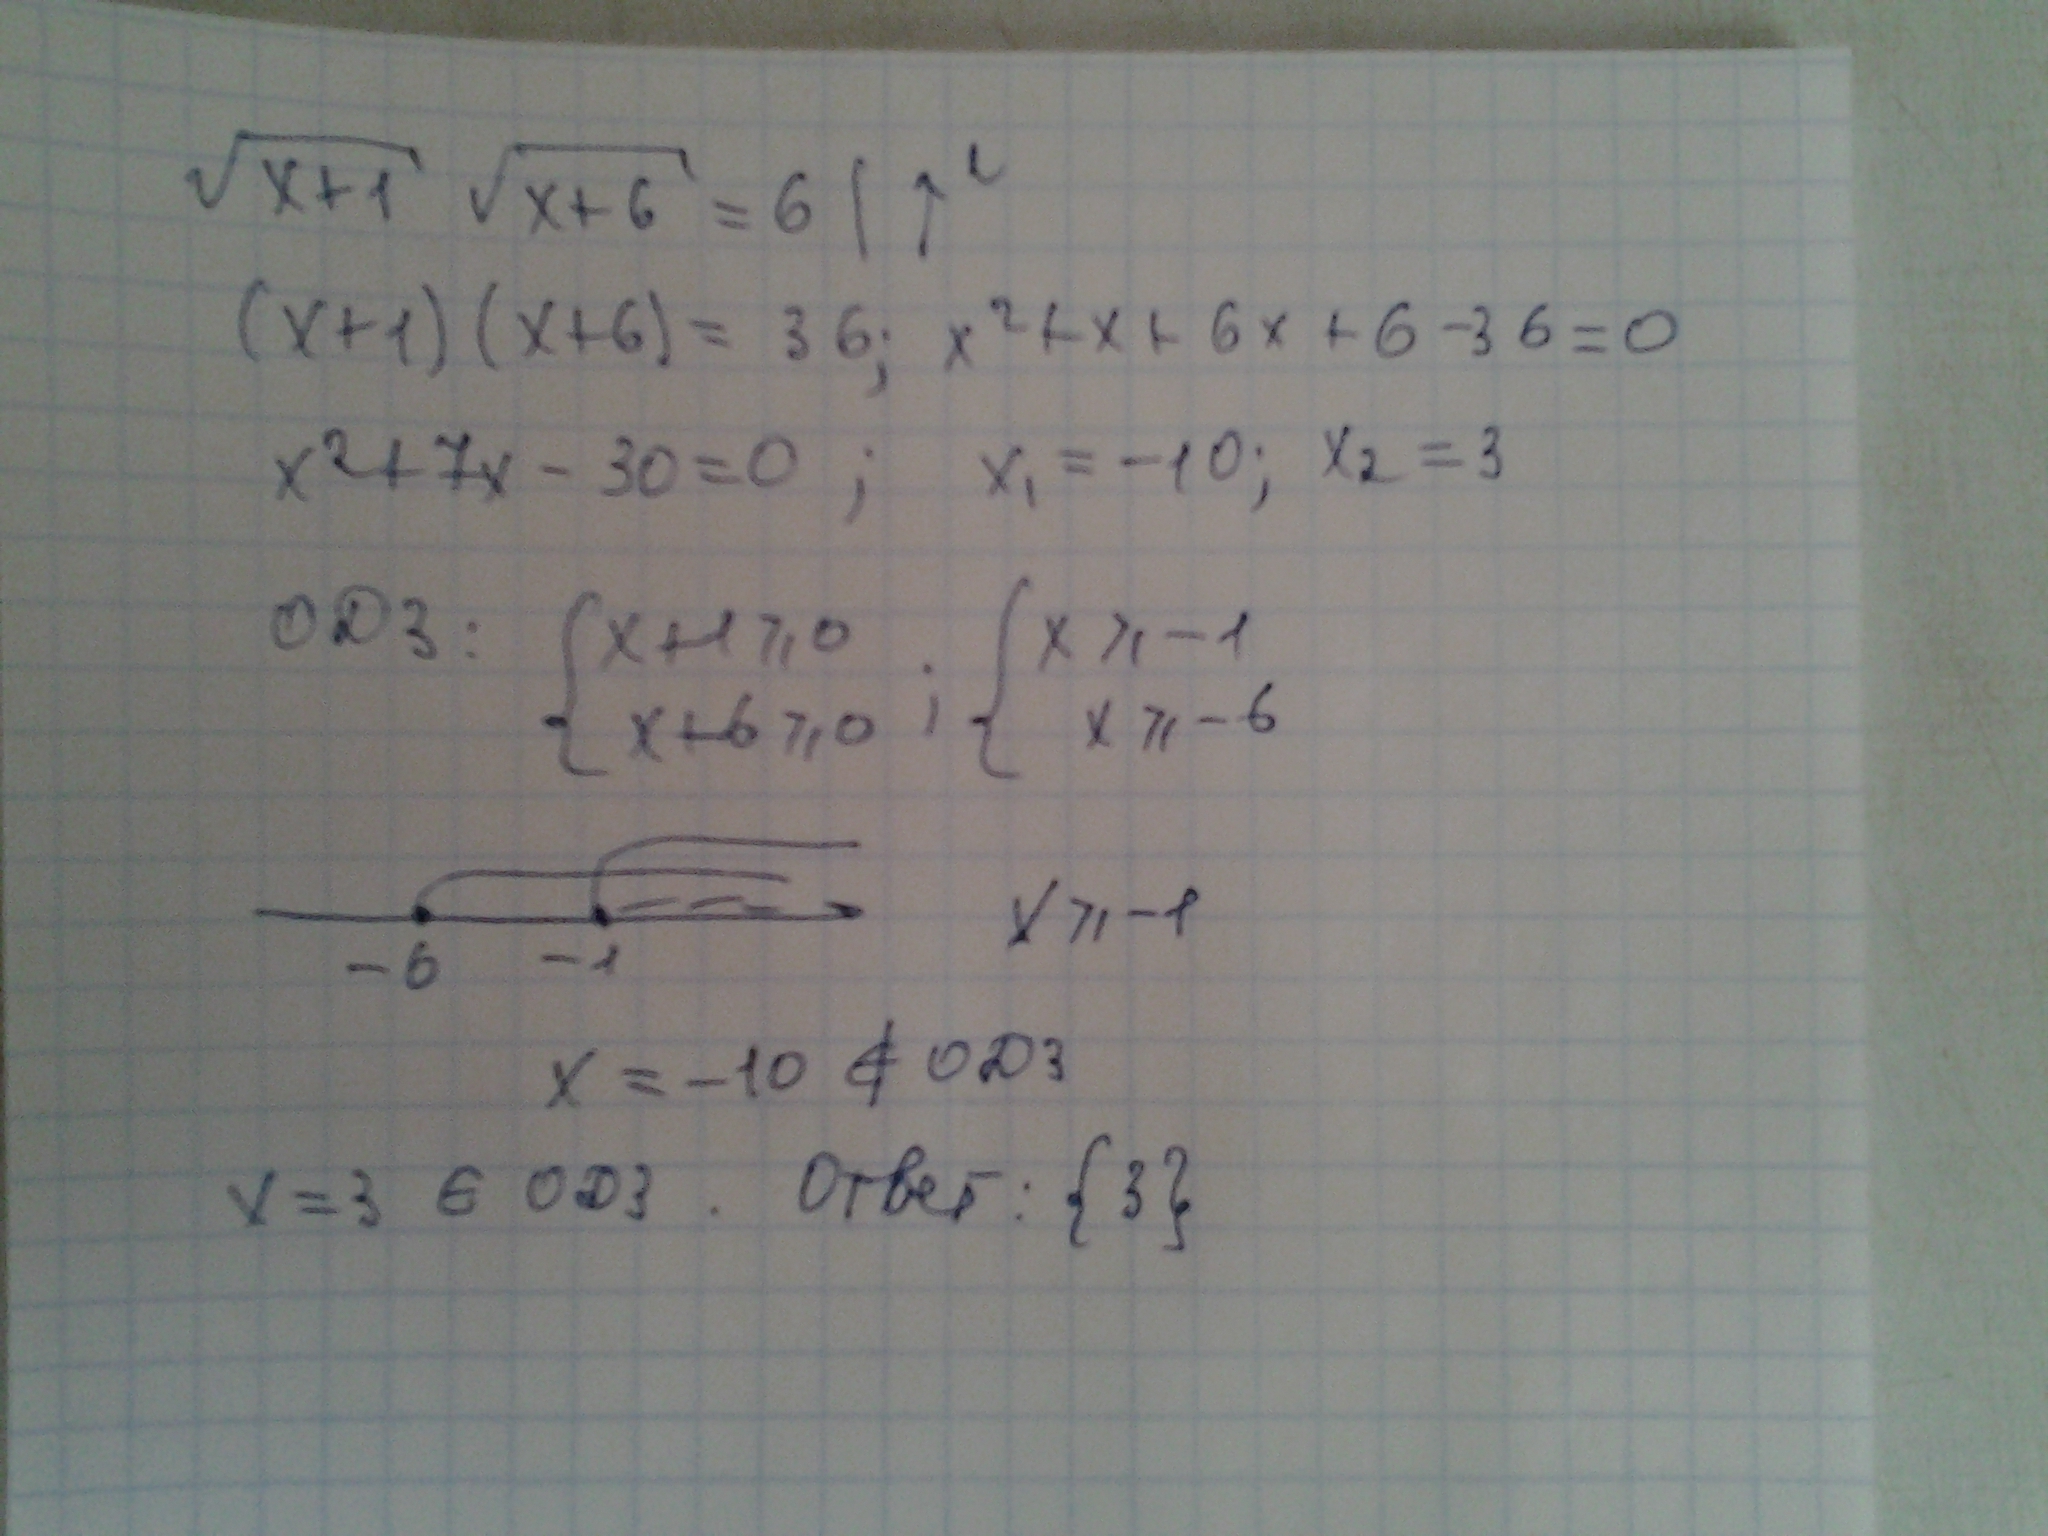 √(x+1) √(x+6) = 6 | ↑²
(x+1)(x+6) = 36; x²+x+6x+6-36=0
x²+7x-30=0; x₁=-10; x₂=3
ОДЗ: { x+1⩾0 ; { x⩾-1
x+6⩾0 x⩾-6
-6 -1 x⩾-1
x=-10 ∉ ОДЗ
x=3 ∈ ОДЗ. Ответ: {3}